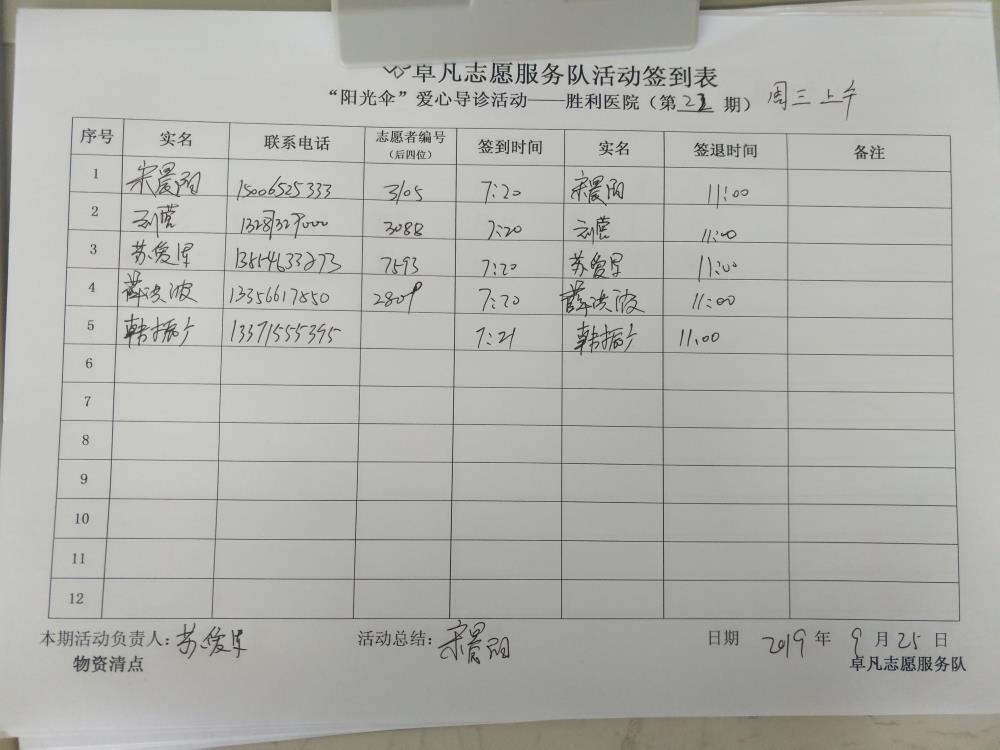 卓凡志愿服务队活动签到表
“阳光伞”爱心导诊活动——胜利医院（第 期） 周三上午
序号 实名 联系电话 志愿者编号（后四位） 签到时间 实名 签退时间 备注
1 宋晨阳 15006525333 3105 7:20 宋晨阳 11:00
2 刘营 3088 7:20 刘营 11:00
3 苏爱军 13854633273 7593 7:20 苏爱军 11:00
4 薛洪波 13356617850 2809 7:20 薛洪波 11:00
5 韩振 13371555395 7:21 韩振 11:00
6
7
8
9
10
11
12
本期活动负责人：苏爱军 活动总结：宋晨阳 日期 2019 年 9 月 25 日
物资清点 卓凡志愿服务队